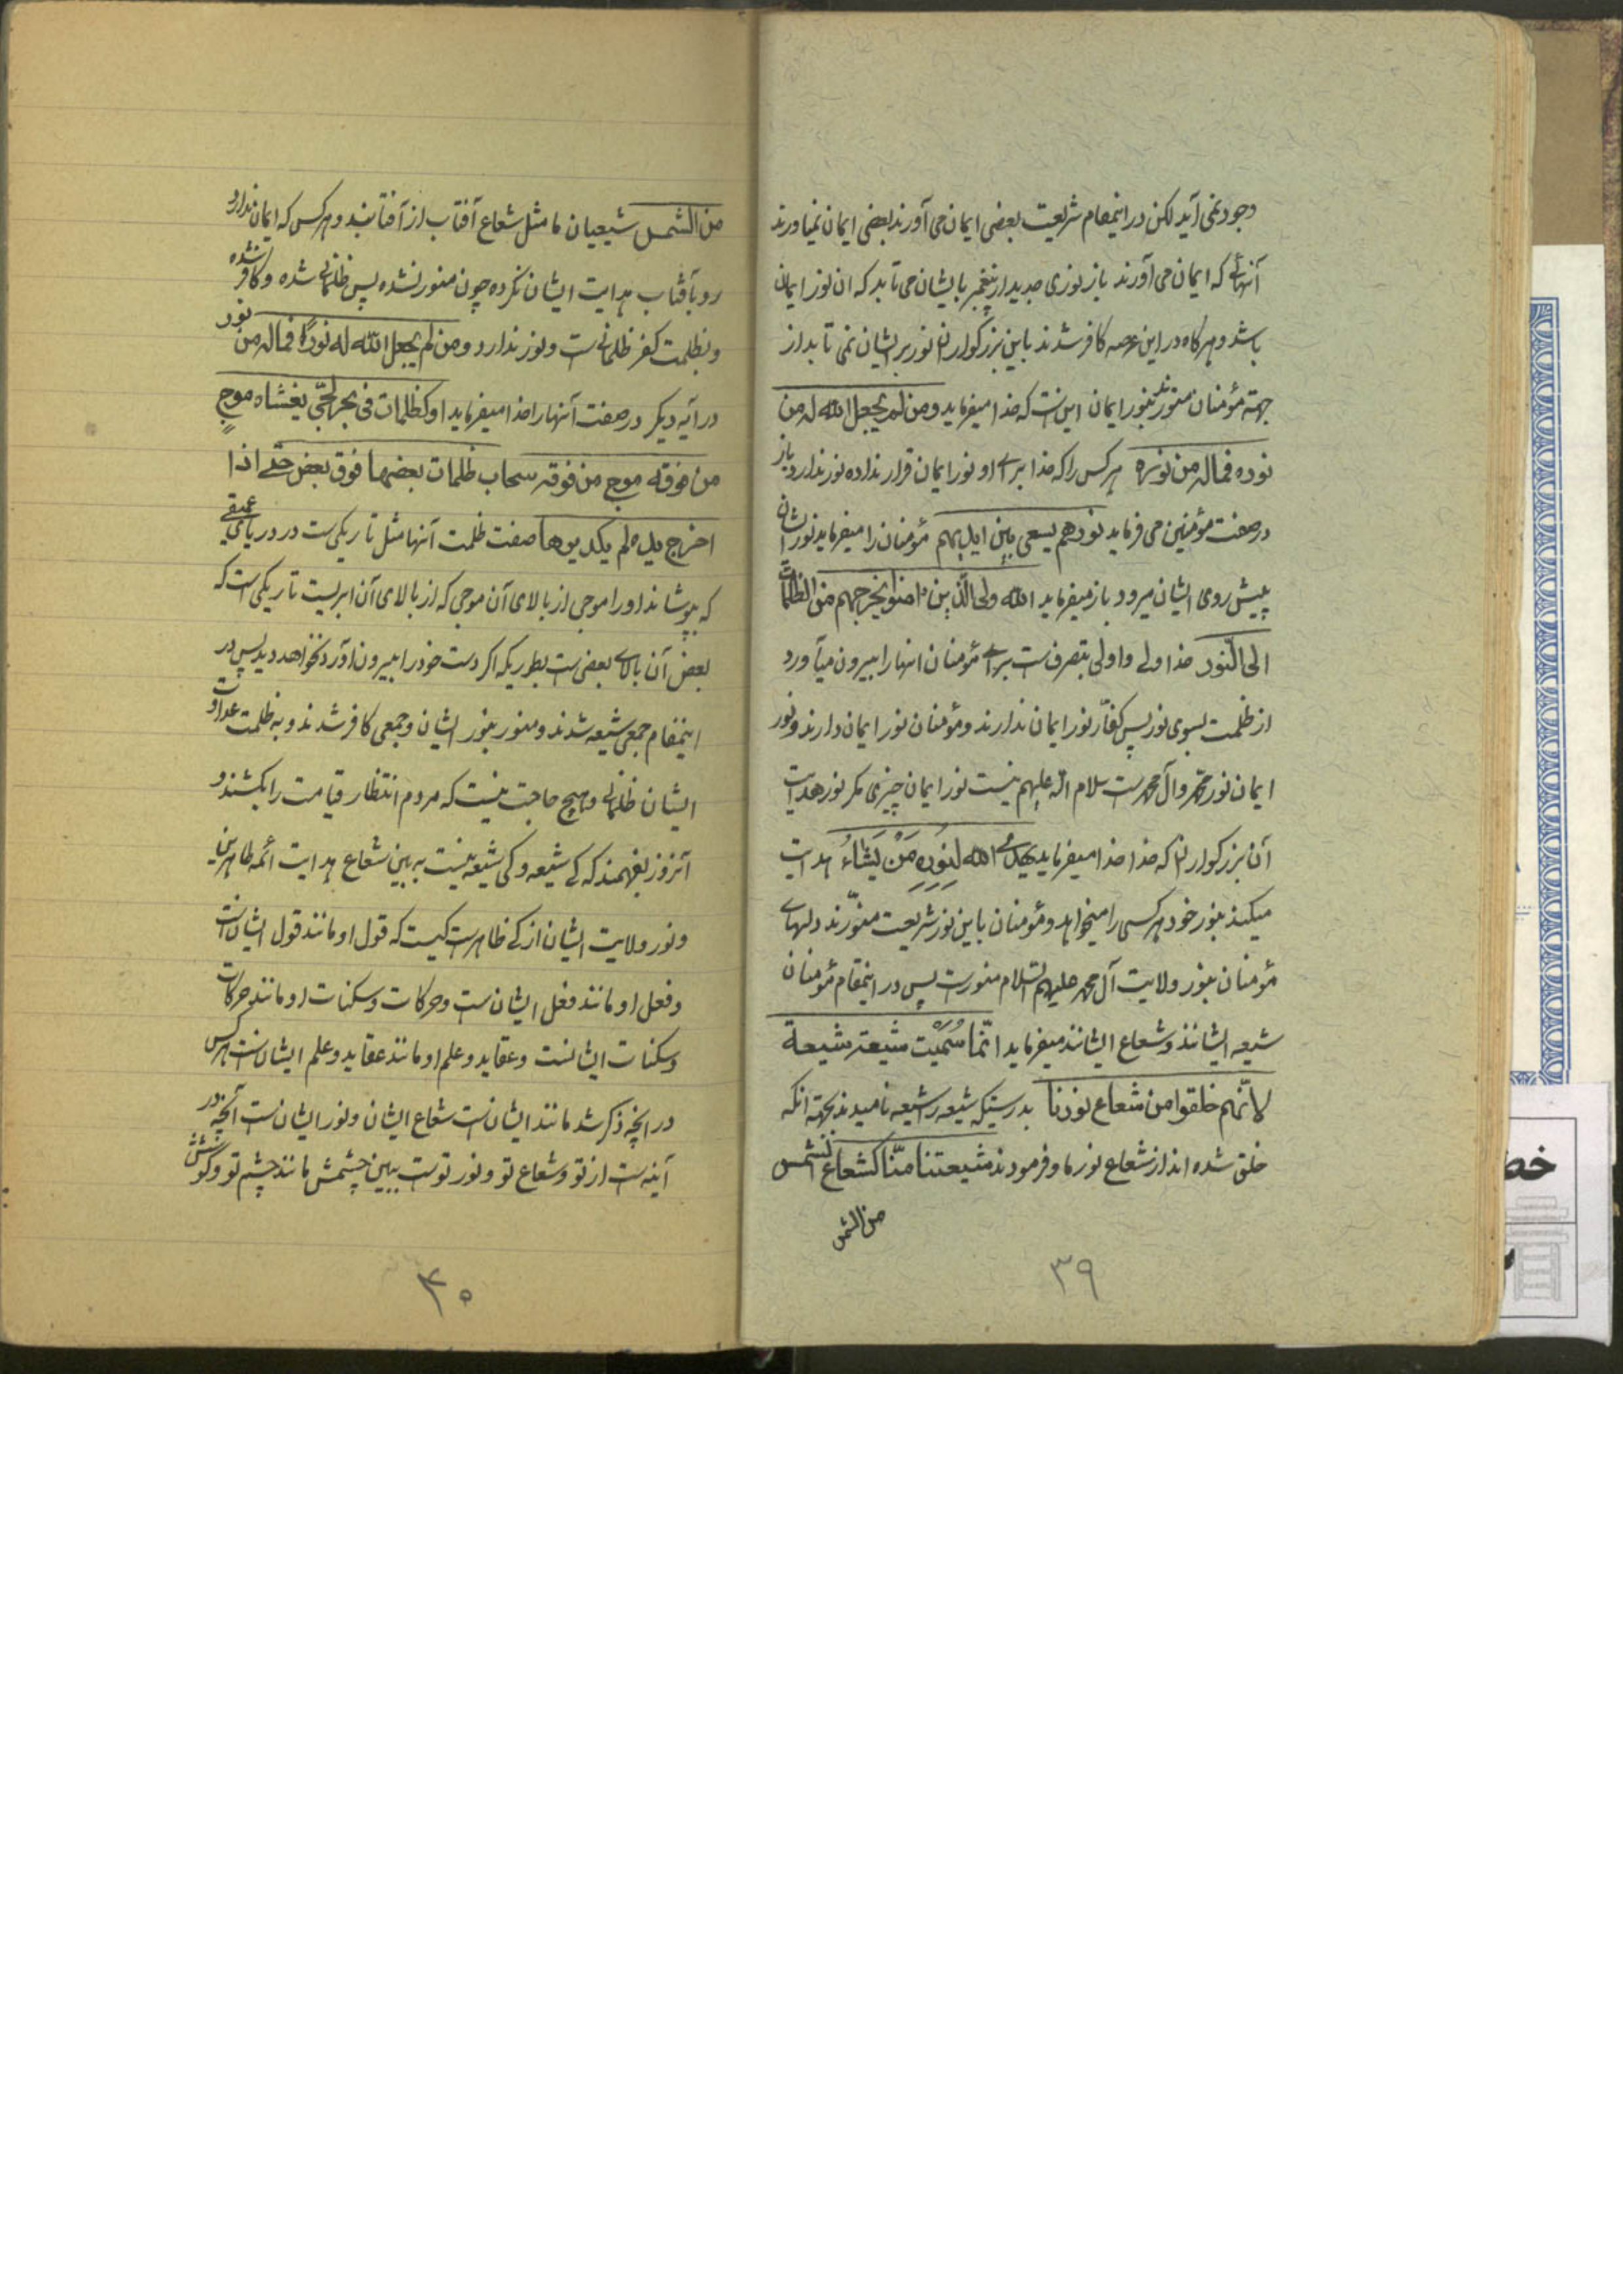 وجود نمی آید لکن در اینمقام شریعت بعضی ایمان می آورند بعضی ایمان نمیاورند
آنهائے که ایمان می آورند باز نوری جدید از پیغمبر بایشان می تابد که ان نور ایمان
باشد و هرگاه در این عرصه کافر شدند باین بزرگواران نور بر ایشان نمی تابد از
جهة مؤمنان منورند بنور ایمان این ست که خدا میفرماید ومن لم یجعل الله له من
نوره فماله من نوره هر کس را که خدا برای او نور ایمان قرار نداده نور ندارد و باز
در صفت مؤمنین می فرماید نورهم یسعی بین ایدیهم مؤمنان را میفرماید نورشان
پیش روی ایشان میرود و باز میفرماید الله ولی الذین امنوا یخرجهم من الظلمات
الی النور خدا ولی و اولی بتصرف ست برای مؤمنان انها را بیرون میآورد
از ظلمت بسوی نور پس کفّار نور ایمان ندارند و مؤمنان نور ایمان دارند و نور
ایمان نور محمد وآل محمد ست سلام الله علیهم نیست نور ایمان چیزی مگر نور هدایت
آن بزرگواران که خدا خدا میفرماید یهدی الله لنوره من یَشاءُ هدایت
میکند بنور خود هر کسی را میخواهد و مؤمنان باین نور شریعت منوّرند و دلهای
مؤمنان بنور ولایت آل محمد علیهم السلام منورست پس در اینمقام مؤمنان
شیعه ایشانند و شعاع ایشانند میفرماید انّما سُمّیت شیعته شیعة
لانّهم خلقوا من شعاع نورنا بدرستیکه شیعه را شیعه نامیدند بجهة انکه
خلق شده اند از شعاع نور ما و فرمودند شیعتنا منّا کشعاع الشمس
من الشمس
۳۹
من الشمس شیعیان ما مثل شعاع آفتاب از آفتابند و هر کس که ایمان ندارد
رو بآفتاب هدایت ایشان نکرده چون منور نشده پس ظلمانی شده و کافر شده
و بظلمت کفر ظلمانی ست و نور ندارد ومن لم یجعل الله له نورًا فماله من نور
در آیه دیگر در صفت آنها را خدا میفرماید او کظلمات فی بحر لجّی یغشاه موج
من فوقه موج من فوقه سحاب ظلمات بعضها فوق بعض حتی اذا
اخرج یده لم یکد یریها صفت ظلمت آنها مثل تاریکی ست در دریای عمیقی
که بپوشاند او را موجی از بالای آن موجی که از بالای آن ابریست تاریکی است که
بعض آن بالای بعض ست بطوریکه اگر دست خود را بیرون آورد نخواهد دید پس در
اینمقام جمعی شیعه شدند و منور بنور ایشان و جمعی کافر شدند و به ظلمت عداوت
ایشان ظلمانی و هیچ حاجت نیست که مردم انتظار قیامت را بکشند و
آنروز بفهمند که کی شیعه و کی شیعه نیست به بین شعاع هدایت ائمه طاهرین
و نور ولایت ایشان از کے ظاهرست کیست که قول او مانند قول ایشان ست
و فعل او مانند فعل ایشان ست و حرکات و سکنات او مانند حرکات
و سکنات ایشانست و عقاید و علم او مانند عقاید و علم ایشان ست هر کس
در انچه ذکر شد مانند ایشان ست شعاع ایشان و نور ایشان ست آنچه در
آینه ست از تو و شعاع تو و نور توست ببین چشمش مانند چشم تو و گوشش
۴۰
خط